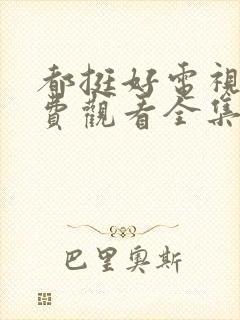 都挺好電視
費觀看全集
巴里奧斯